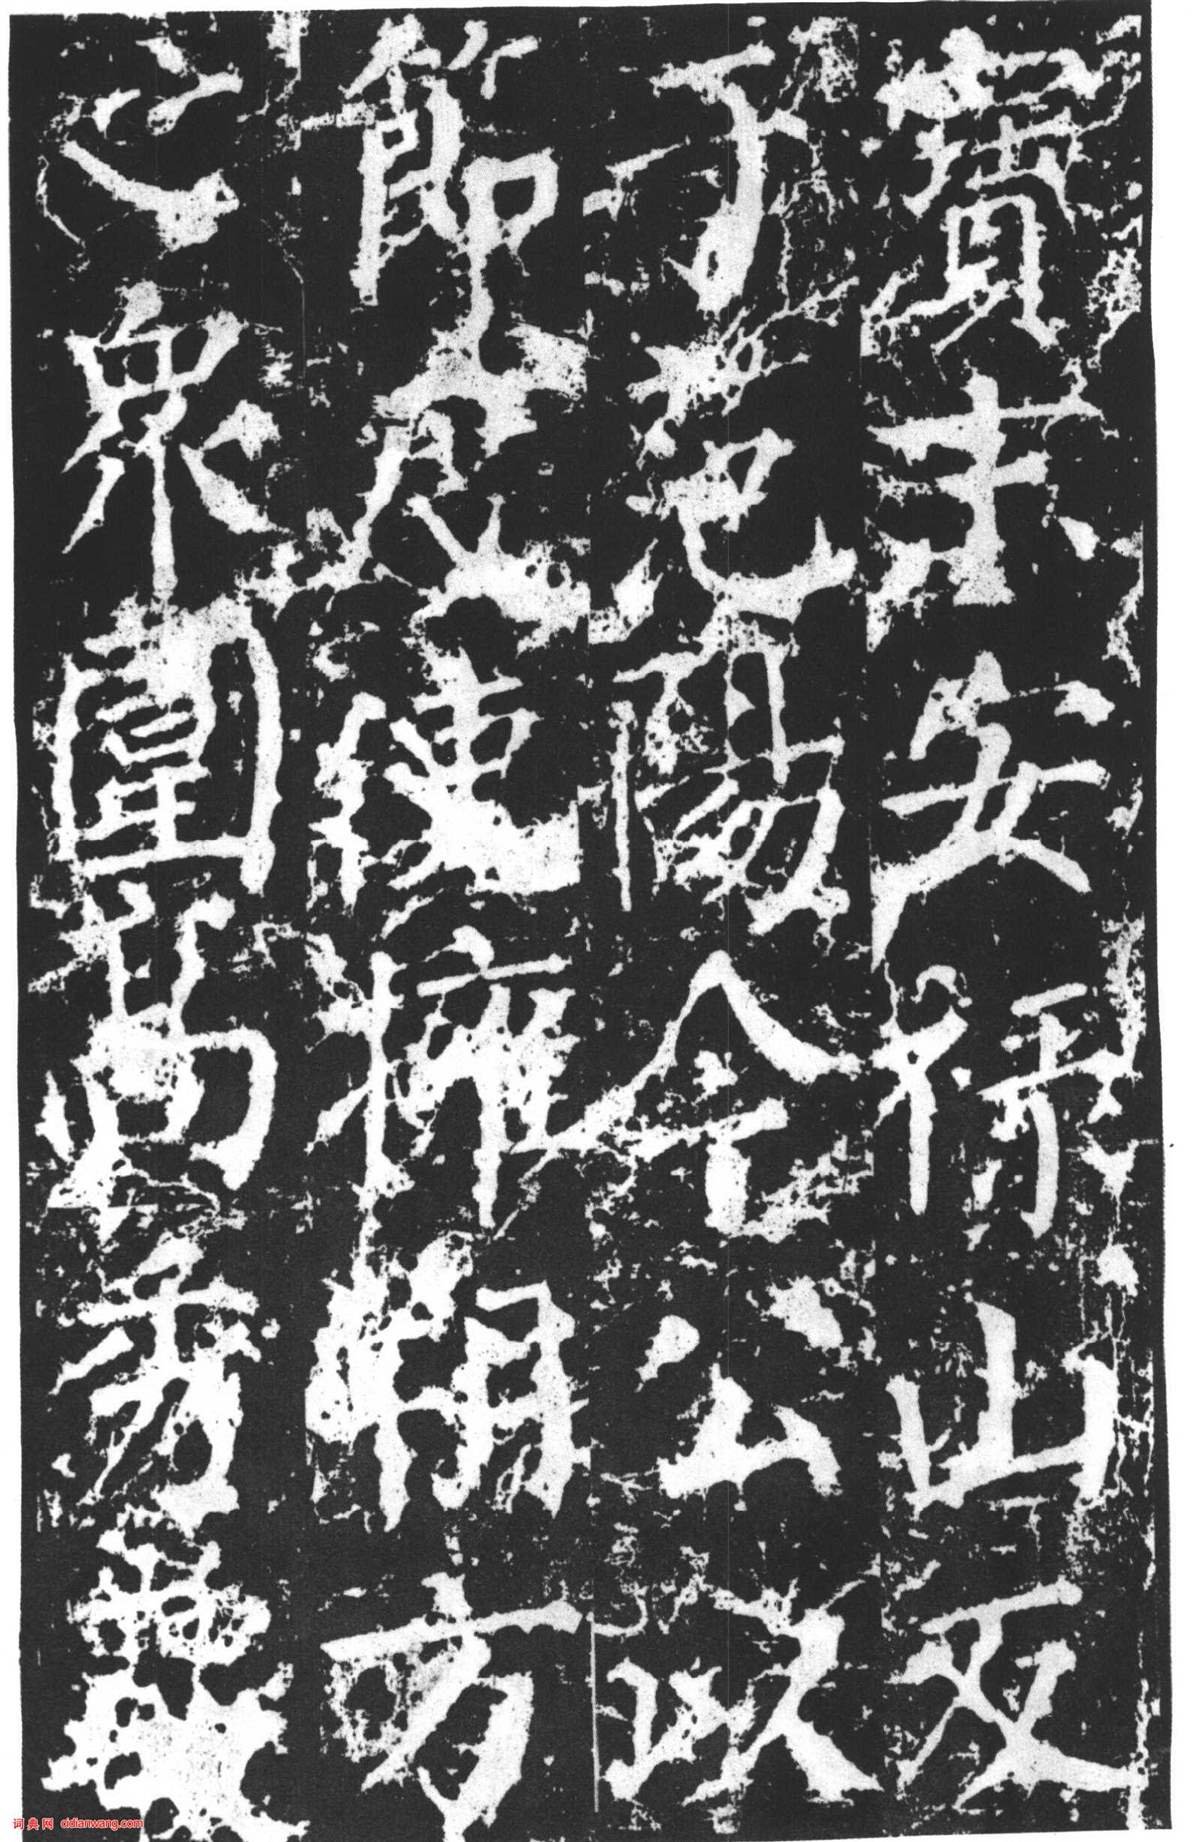 寶末安祿山反
于范陽令公以
節度使擁朔方
之眾圍高秀巖
词典网 cidianwang.com